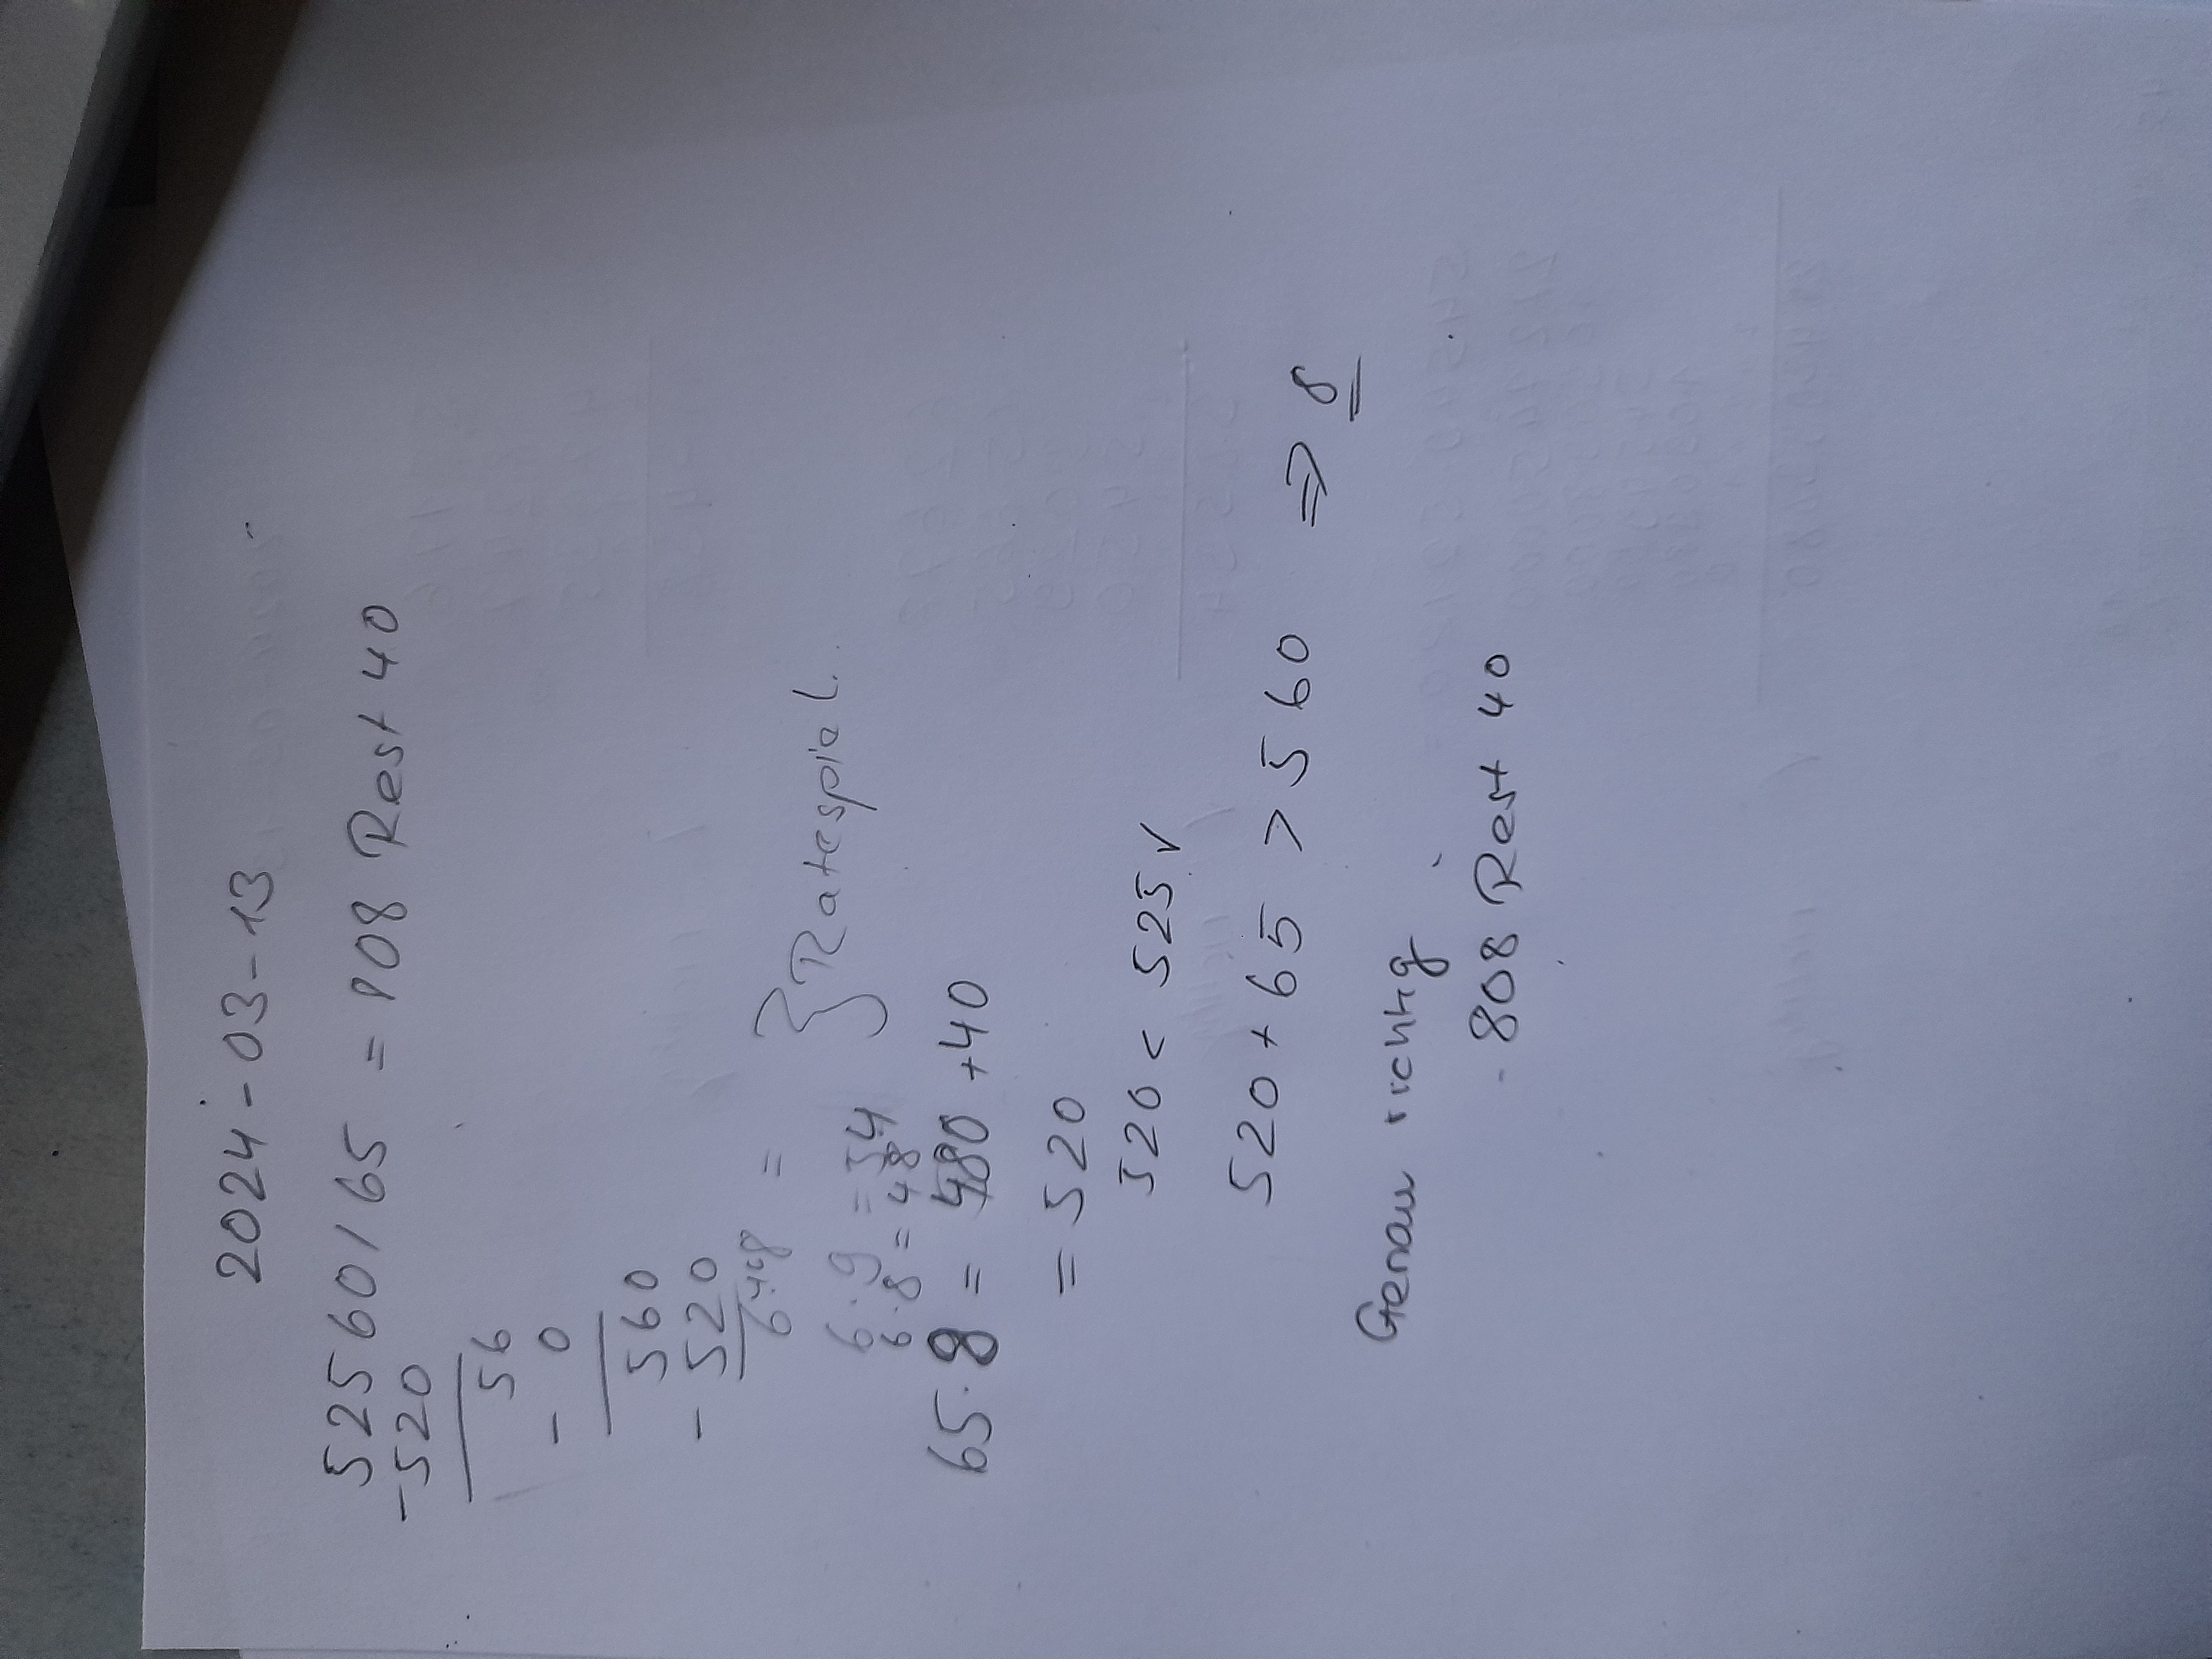 2024-03-13
52560/65 = 808 Rest 40
-520
56
- 0
560
- 520
6.48 =
6.9 = 54
6.8 = 48
} Ratespiel
65.8 = 480 +40
= 520
520 < 525 v
520 + 65 > 560 => 8
Genau richtig
808 Rest 40